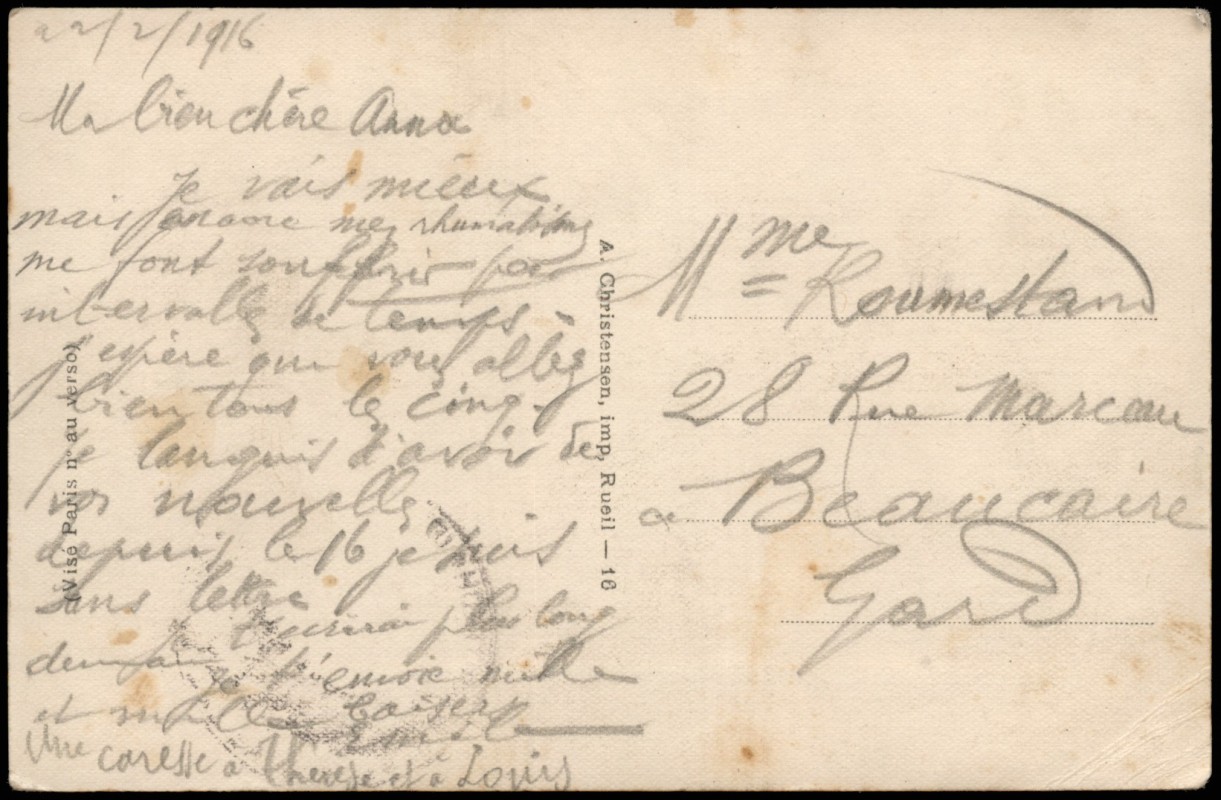 22/2/1916
Ma bien chère Anna
Je vais mieux
mais encore mes rhumatismes
me font souffrir par
intervalles de temps -
j'espère que vous allez
bien tous les cinq -
je languis d'avoir de
vos nouvelles
depuis le 16 je suis
sans lettre
Je t'écrirai plus long
demain je t'envoie mille
et mille baisers
Emile
Une caresse à Thérèse et à Louis
(Visé Paris n° au verso)
A. Christensen, imp, Rueil — 16
Mme Roumestan
28 Rue Marceau
à Beaucaire
Gard